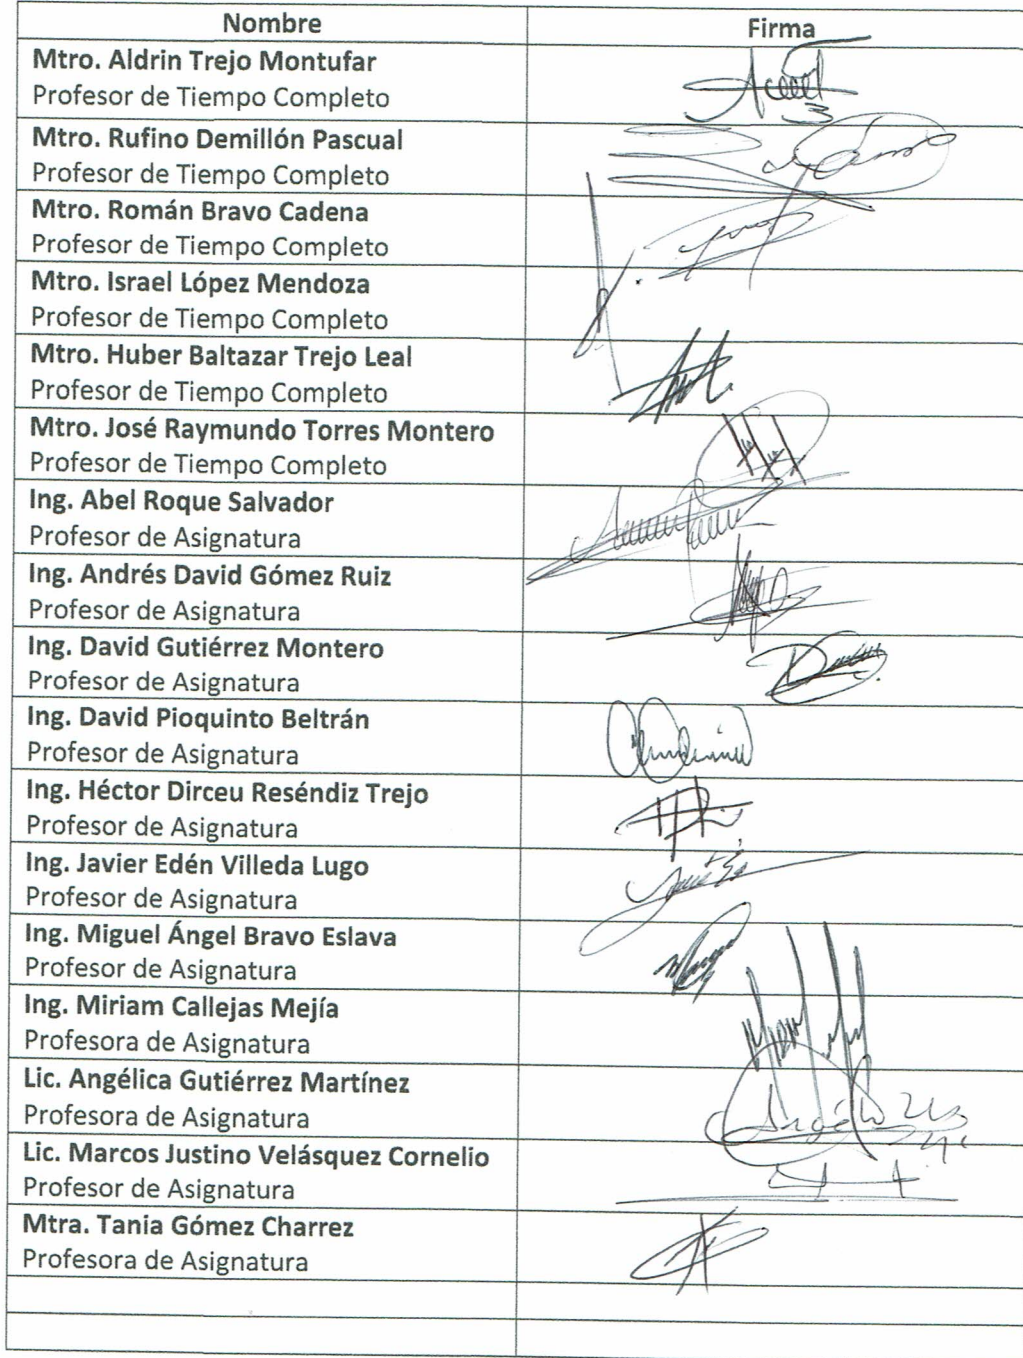 Nombre Firma
Mtro. Aldrin Trejo Montufar
Profesor de Tiempo Completo
Mtro. Rufino Demillón Pascual
Profesor de Tiempo Completo
Mtro. Román Bravo Cadena
Profesor de Tiempo Completo
Mtro. Israel López Mendoza
Profesor de Tiempo Completo
Mtro. Huber Baltazar Trejo Leal
Profesor de Tiempo Completo
Mtro. José Raymundo Torres Montero
Profesor de Tiempo Completo
Ing. Abel Roque Salvador
Profesor de Asignatura
Ing. Andrés David Gómez Ruiz
Profesor de Asignatura
Ing. David Gutiérrez Montero
Profesor de Asignatura
Ing. David Pioquinto Beltrán
Profesor de Asignatura
Ing. Héctor Dirceu Reséndiz Trejo
Profesor de Asignatura
Ing. Javier Edén Villeda Lugo
Profesor de Asignatura
Ing. Miguel Ángel Bravo Eslava
Profesor de Asignatura
Ing. Miriam Callejas Mejía
Profesora de Asignatura
Lic. Angélica Gutiérrez Martínez
Profesora de Asignatura
Lic. Marcos Justino Velásquez Cornelio
Profesor de Asignatura
Mtra. Tania Gómez Charrez
Profesora de Asignatura